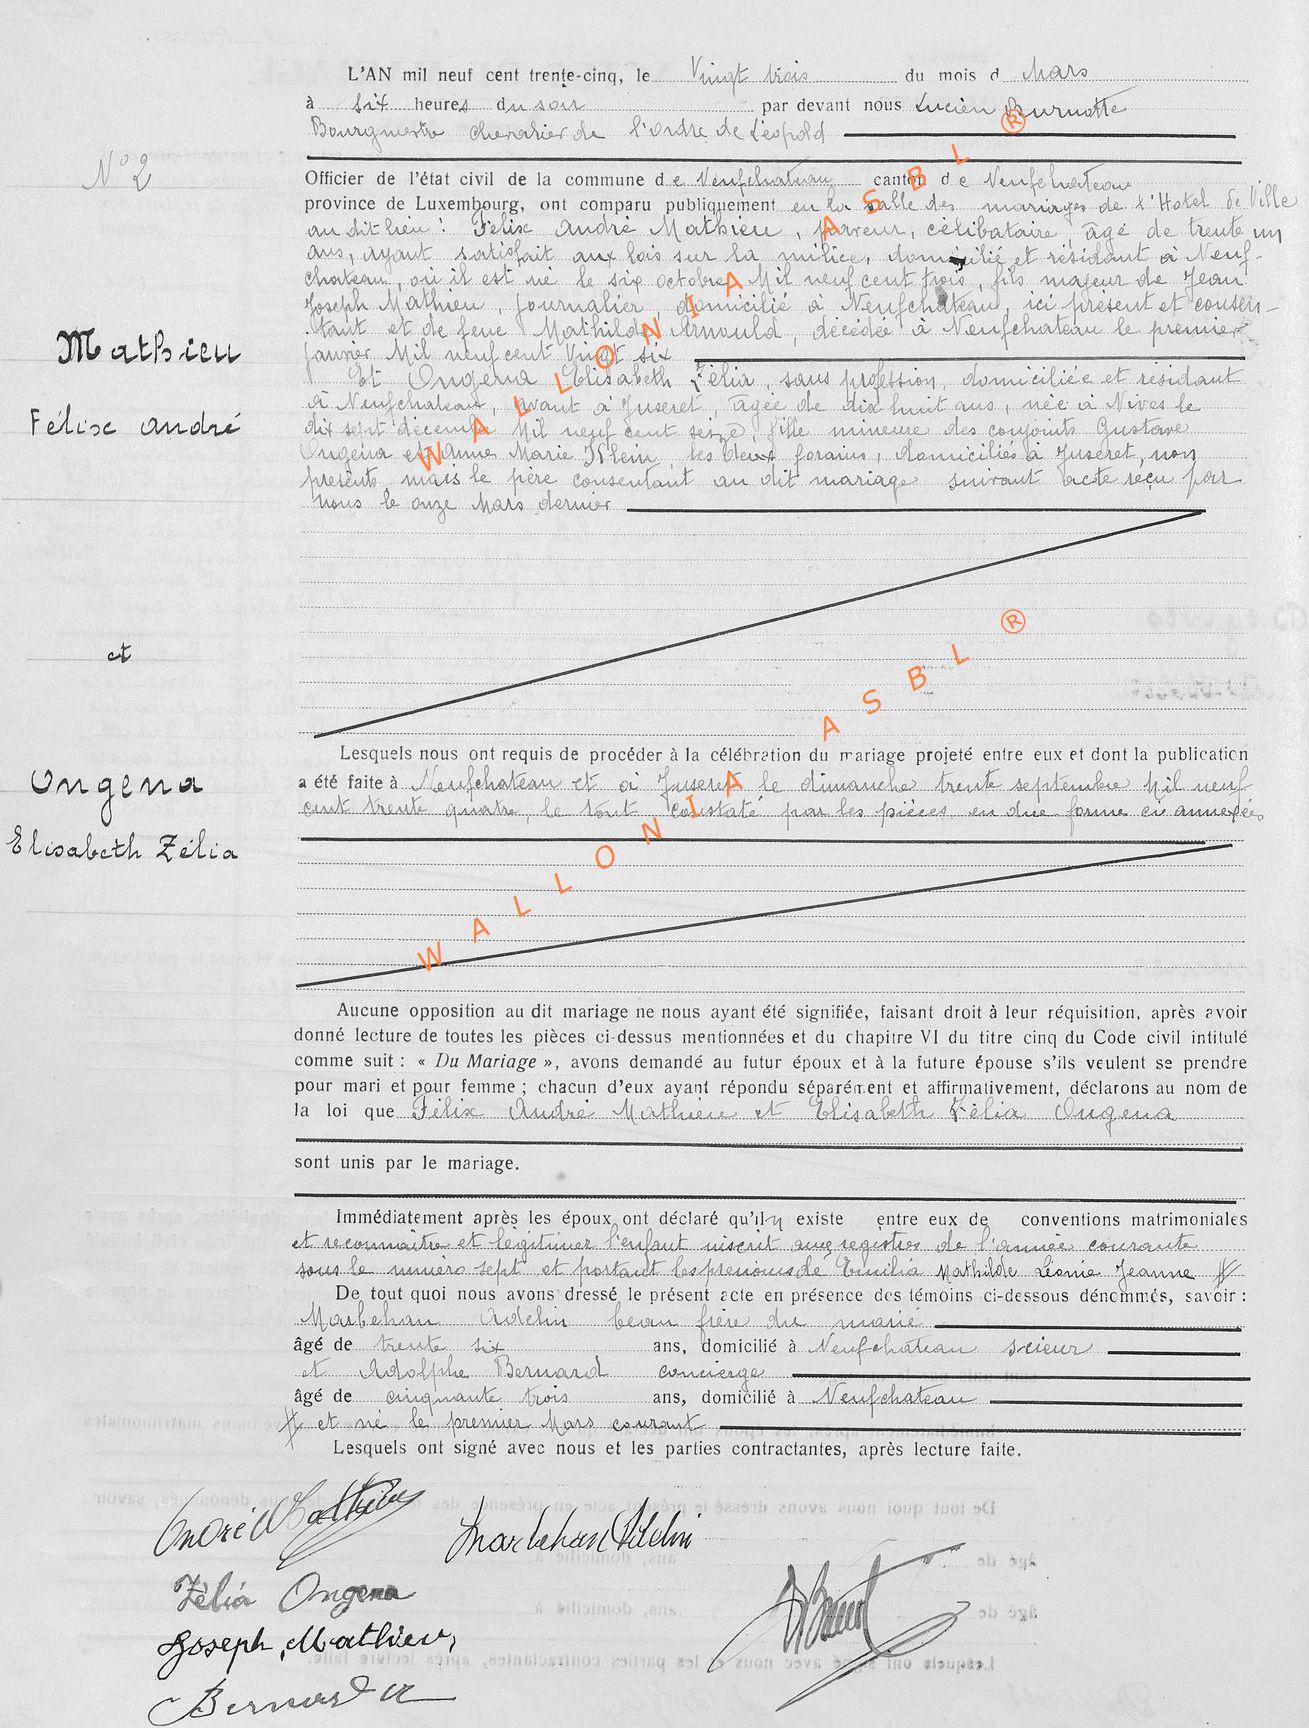 L'AN mil neuf cent trente-cinq, le Vingt trois du mois d Mars
à six heures du soir par devant nous Lucien Burnotte
Bourgmestre chevalier de l'ordre de Léopold
N° 2
Officier de l'état civil de la commune de Neufchateau canton de Neufchateau
province de Luxembourg, ont comparu publiquement en la salle des mariages de l'Hotel de Ville
au dit lieu : Félix André Mathieu, célibataire, âgé de trente un
ans, ayant satisfait aux lois sur la milice, domicilié et résidant à Neuf-
chateau, où il est né le six octobre Mil neuf cent trois, fils majeur de Jean
Joseph Mathieu, journalier, domicilié à Neufchateau, ici présent et consen-
tant et de feue Mathilde Arnould, décédée à Neufchateau le premier
janvier Mil neuf cent Vingt six
Mathieu
Et Ongena Elisabeth Zélia, sans profession, domiciliée et résidant
à Neufchateau, avant à Juseret, âgée de dix huit ans, née à Nives le
Félix André
dix sept décembre Mil neuf cent seize, fille mineure des conjoints Gustave
Ongena et Anne Marie Klein, les deux forains, domiciliés à Juseret, non
présents mais le père consentant au dit mariage suivant acte reçu par
nous le onze Mars dernier
et
Lesquels nous ont requis de procéder à la célébration du mariage projeté entre eux et dont la publication
a été faite à Neufchateau et à Juseret le dimanche trente septembre Mil neuf
cent trente quatre, le tout constaté par les pièces en due forme ci annexées
Ongena
Elisabeth Zélia
Aucune opposition au dit mariage ne nous ayant été signifiée, faisant droit à leur réquisition, après avoir
donné lecture de toutes les pièces ci-dessus mentionnées et du chapitre VI du titre cinq du Code civil intitulé
comme suit : « Du Mariage », avons demandé au futur époux et à la future épouse s'ils veulent se prendre
pour mari et pour femme ; chacun d'eux ayant répondu séparément et affirmativement, déclarons au nom de
la loi que Félix André Mathieu et Elisabeth Zélia Ongena
sont unis par le mariage.
Immédiatement après les époux ont déclaré qu'il n'y existe entre eux de conventions matrimoniales
et reconnaitre et légitimer l'enfant inscrit aux registres de l'année courante
sous le numéro sept et portant les prénoms de Emilia Mathilde Léonie Jeanne #
De tout quoi nous avons dressé le présent acte en présence des témoins ci-dessous dénommés, savoir :
Marbehan Adelin beau frère du marié
âgé de trente six ans, domicilié à Neufchateau scieur
et Adolphe Bernard concierge
âgé de cinquante trois ans, domicilié à Neufchateau
# et né le premier Mars courant
Lesquels ont signé avec nous et les parties contractantes, après lecture faite.
André Mathieu
Marbehan Adelin
Zélia Ongena
Joseph Mathieu
Bernard A
WALLONIA ASBL ®
WALLONIA ASBL ®